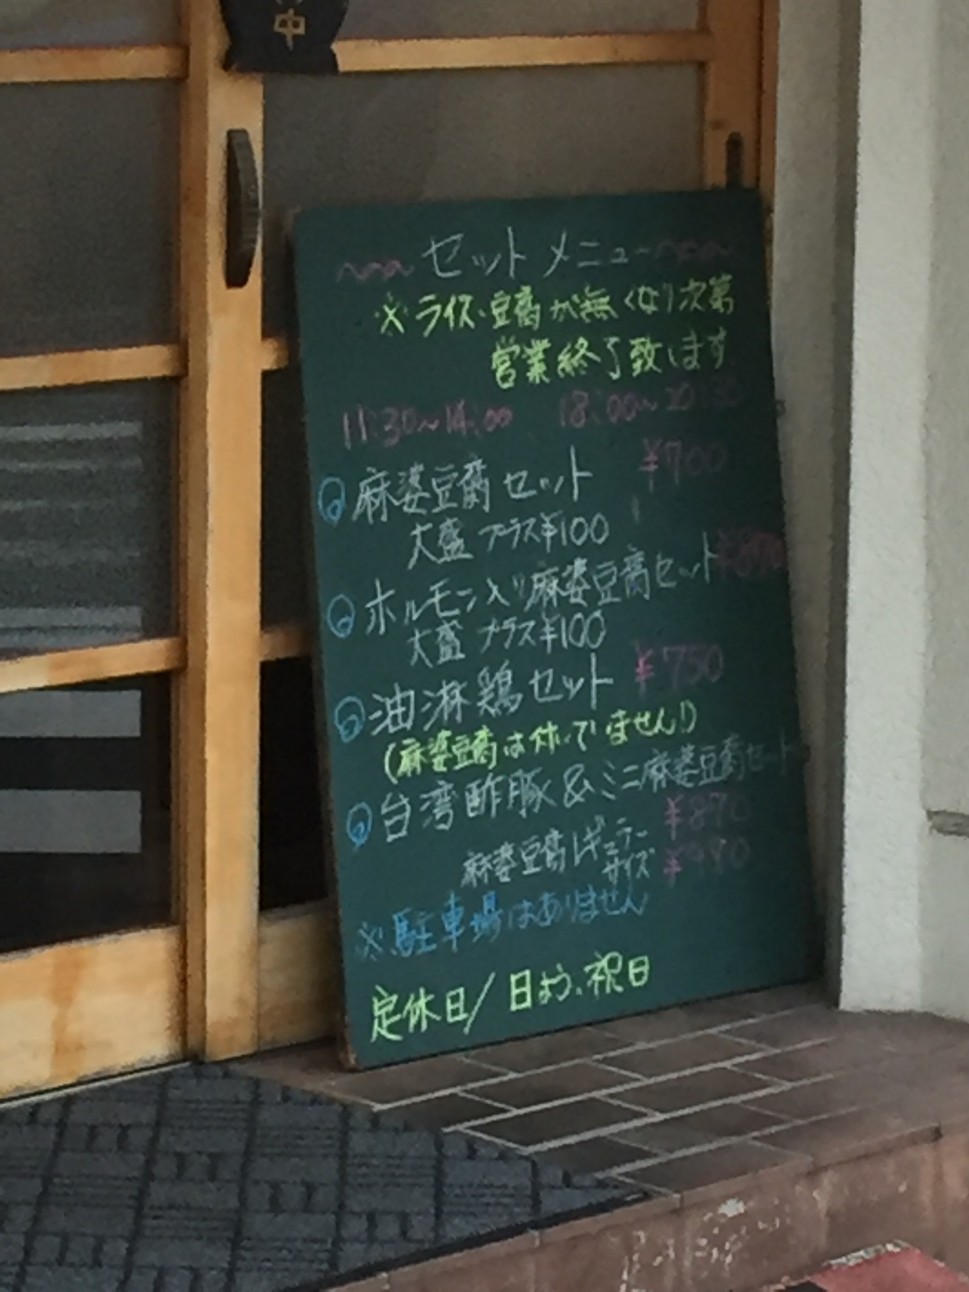 中
セットメニュー
※ライス、豆腐が無くなり次第
営業終了致します
11:30~14:00 18:00~20:30
麻婆豆腐セット ¥700
大盛 プラス¥100
ホルモン入り麻婆豆腐セット
大盛 プラス¥100
油淋鶏セット ¥750
(麻婆豆腐は付いていません!)
台湾酢豚&ミニ麻婆豆腐セット
¥870
麻婆豆腐レギュラーサイズ ¥980
※駐車場はありません
定休日/日よう、祝日